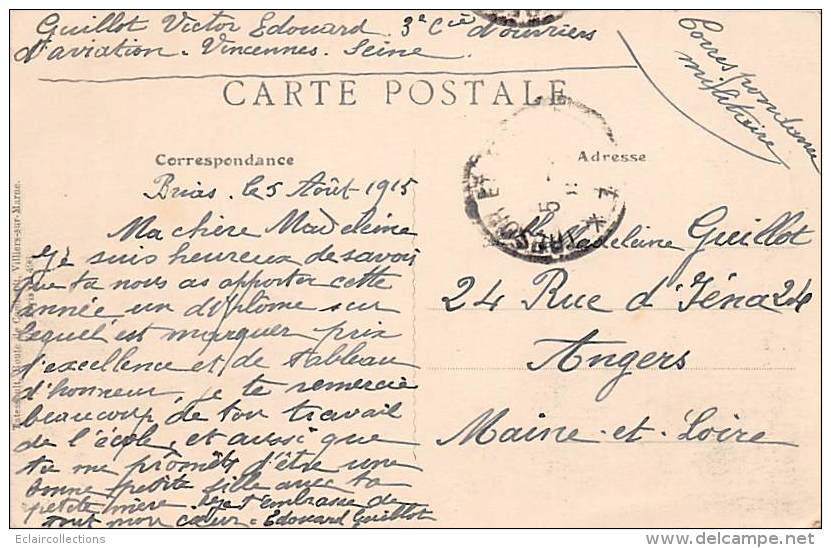 Guillot Victor Edouard 3e Cie d'ouvriers
d'aviation - Vincennes. Seine.
Correspondance
militaire
CARTE POSTALE
Correspondance
Brias. le 5 Août 1915
Ma chère Madeleine
Je suis heureux de savoir
que tu nous as apporter cette
année un diplôme sur
lequel est marquer prix
d'excellence et de tableau
d'honneur, je te remercie
beaucoup de ton travail
de l'école, et aussi que
tu me promets d'être une
bonne petite fille avec ta
petite mère. Je t'embrasse de
tout mon cœur - Edouard Guillot
Adresse
TRESOR ET
5
7
Madeleine Guillot
24 Rue d'Iéna 24
Angers
Maine-et-Loire
Villiers-sur-Marne.
Eclaircollections
www.delcampe.net